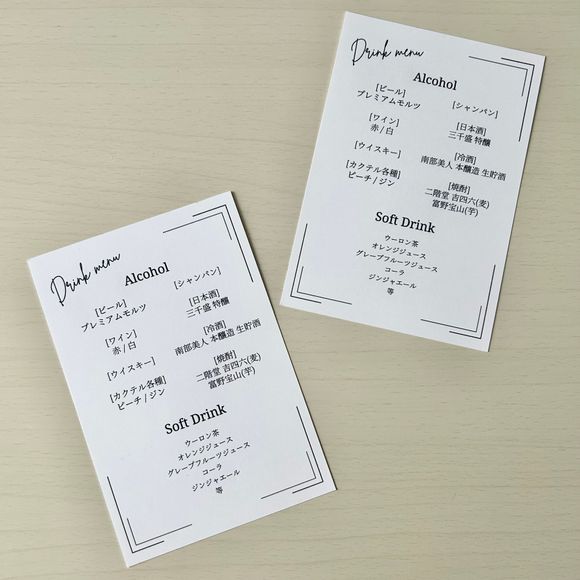 Drink menu
Alcohol
[ビール]
プレミアムモルツ
[シャンパン]
[ワイン]
赤 / 白
[日本酒]
三千盛 特醸
[ウイスキー]
[冷酒]
南部美人 本醸造 生貯酒
[カクテル各種]
ピーチ / ジン
[焼酎]
二階堂 吉四六(麦)
富野宝山(芋)
Soft Drink
ウーロン茶
オレンジジュース
グレープフルーツジュース
コーラ
ジンジャエール
等
Drink menu
Alcohol
[ビール]
プレミアムモルツ
[シャンパン]
[ワイン]
赤 / 白
[日本酒]
三千盛 特醸
[ウイスキー]
[冷酒]
南部美人 本醸造 生貯酒
[カクテル各種]
ピーチ / ジン
[焼酎]
二階堂 吉四六(麦)
富野宝山(芋)
Soft Drink
ウーロン茶
オレンジジュース
グレープフルーツジュース
コーラ
ジンジャエール
等